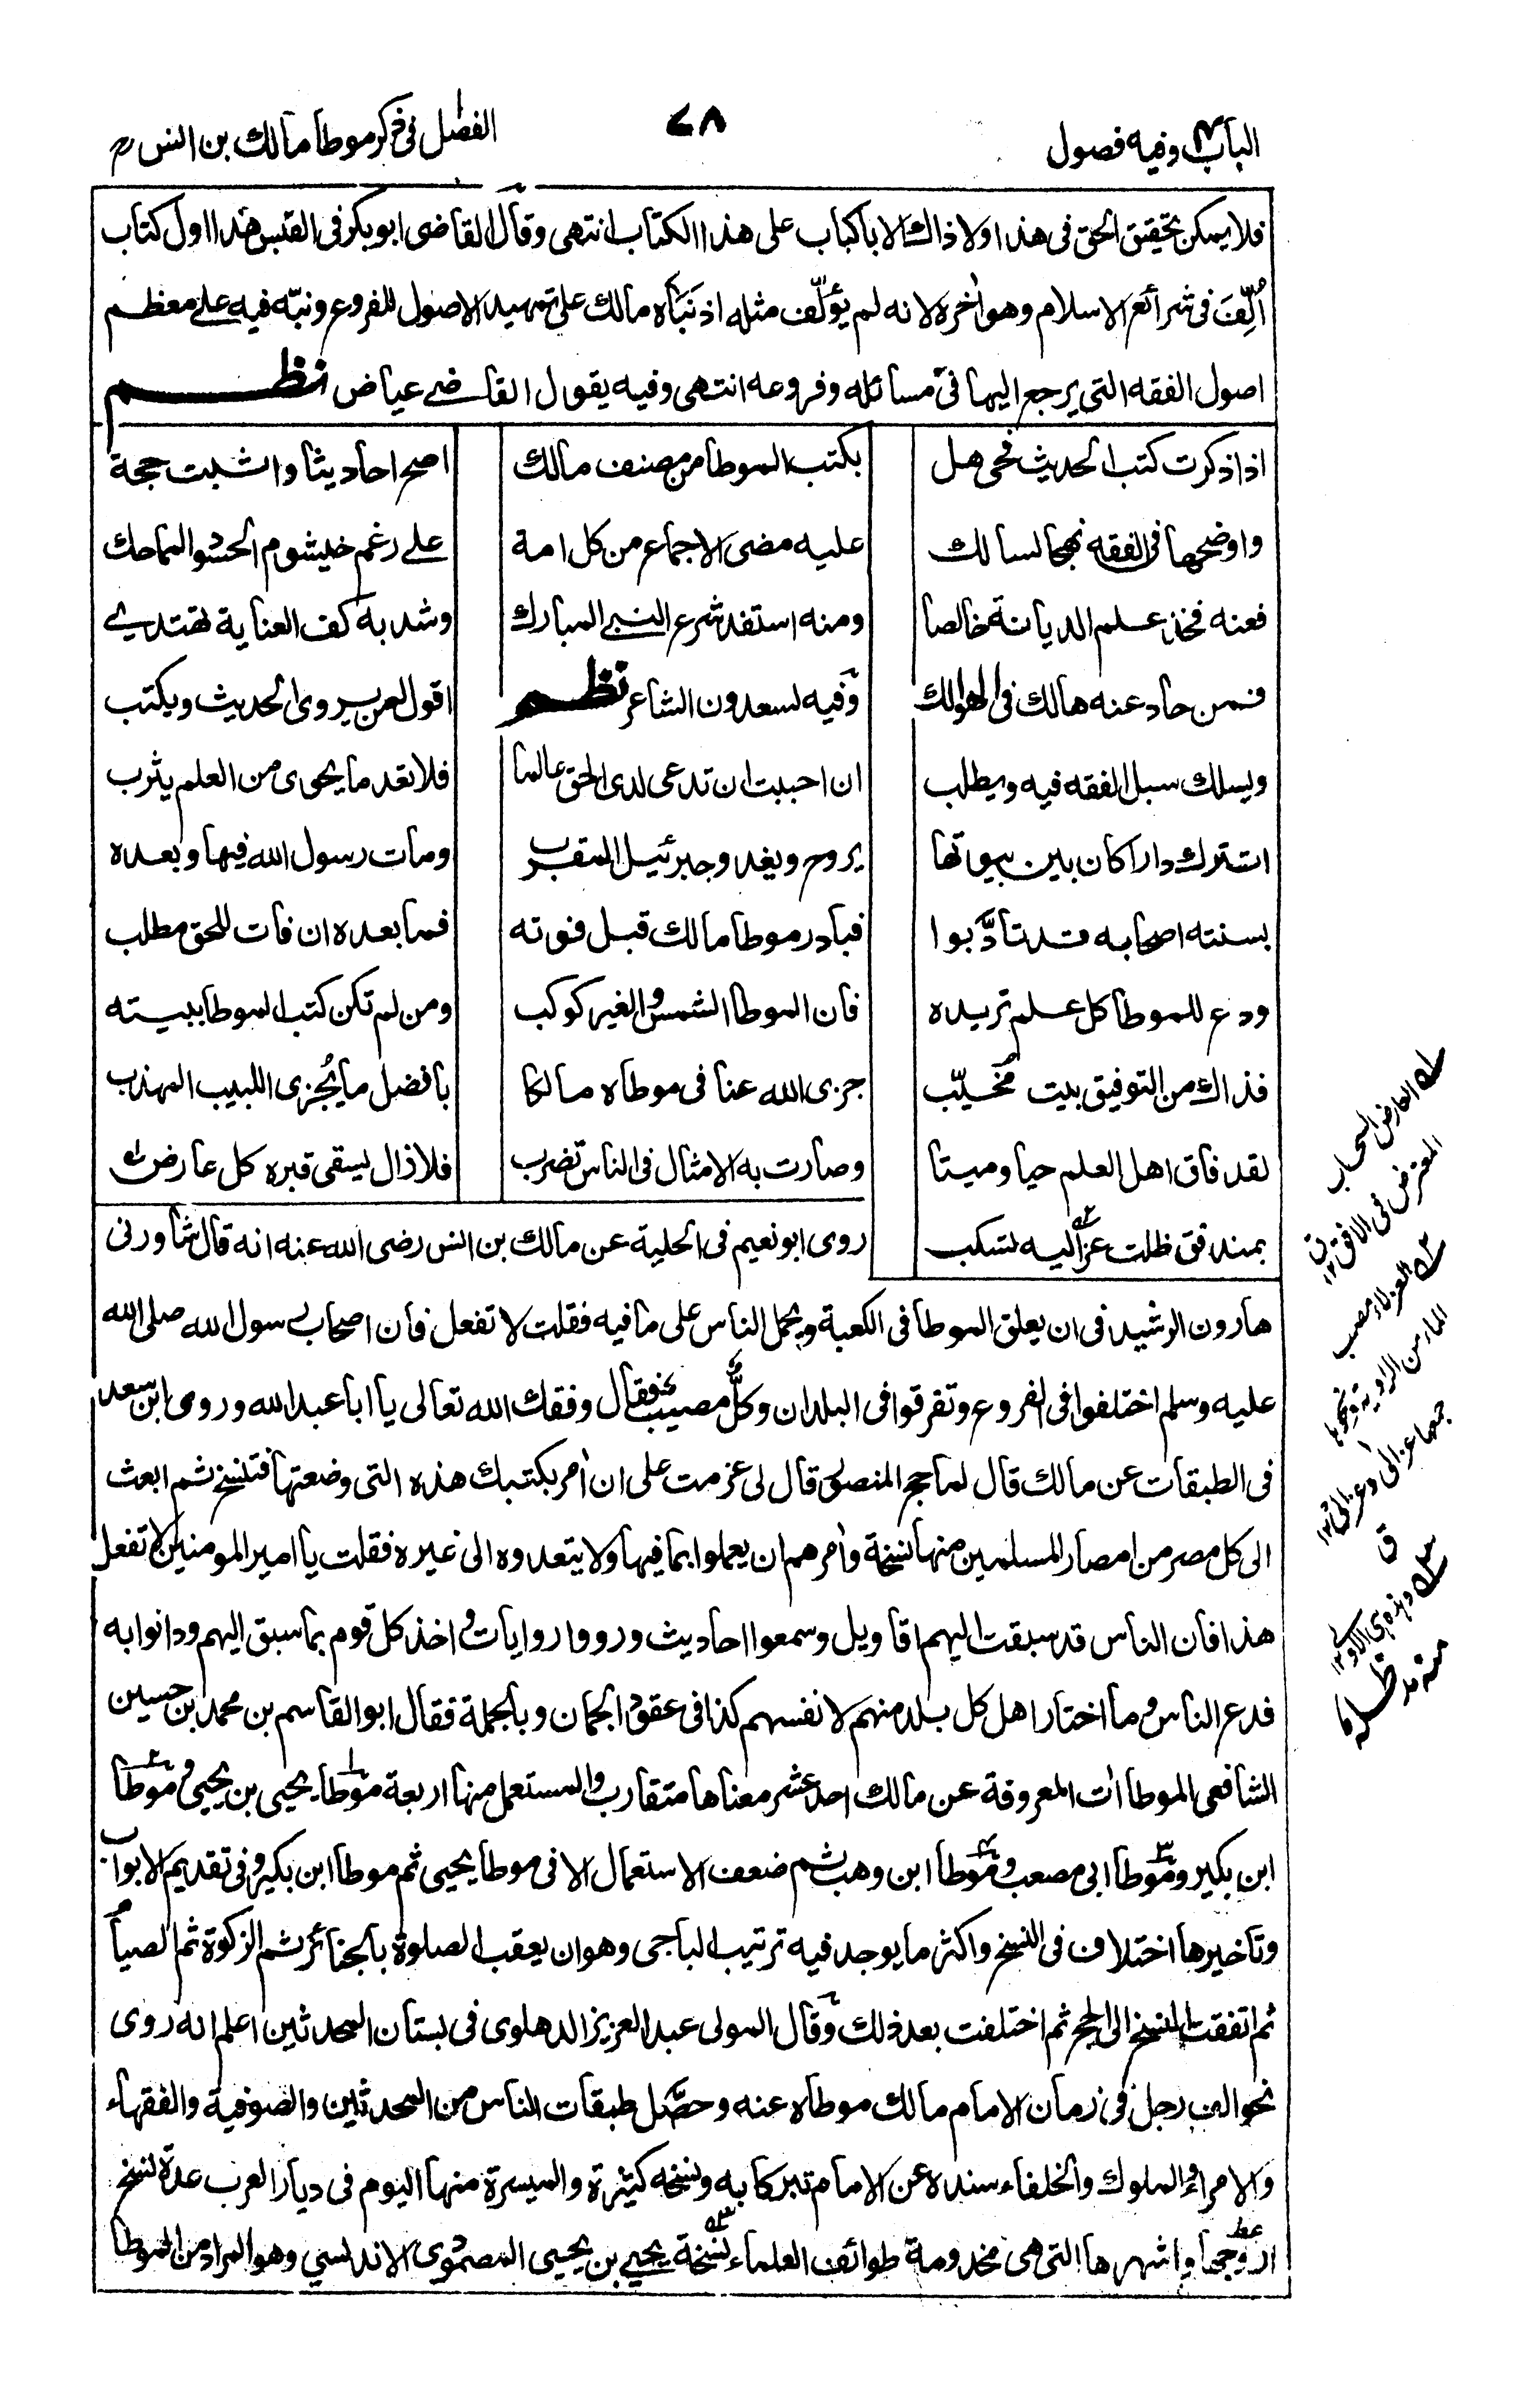 الباب وفيه فصول
٧٨
الفصل في ذكر موطا مالك بن انس
فلا يمكن تحقيق الحق في هذا ولا ذاك الا باكباب على هذا الكتاب انتهى وقال القاضى ابوبكر في القبس هذا اول كتاب
اُلِّفَ في شرائع الاسلام وهو اٰخره لانه لم يؤلَّف مثله اذ نَبَاه مالك على تمهيد الاصول للفروع ونبّه فيه على معظم
اصول الفقه التي يرجع اليها في مسائله وفروعه انتهى وفيه يقول القاضي عياض نظم
اذا ذكرت كتب الحديث فحى هل
بكتب الموطا من مصنف مالك
اصح احاديثا واثبت حجة
واوضحها في الفقه نهجا لسالك
عليه مضى الاجماع من كل امة
على رغم خيشوم الحسود المماحك
فعنه فخذ علم الديانة خالصا
ومنه استفد شرع النبي المبارك
وشد به كف العناية تهتدي
فمن حاد عنه هالك في الهوالك
وفيه لسعدون الشاعر نظم
اقول لمن يروى الحديث ويكتب
ويسلك سبل الفقه فيه ويطلب
ان احببت ان تدعى لدى الحق عالما
فلا تعد ما يحوى من العلم يثرب
اتترك دارا كان بين بيوتها
يروح ويغدو جبرئيل المقرب
ومات رسول الله فيها وبعده
بسنته اصحابه قد تادَّبوا
فبادر موطا مالك قبل فوته
فما بعده ان فات للحق مطلب
ودع للموطا كل علم تريده
فان الموطا الشمس والغير كوكب
ومن لم تكن كتب الموطا ببيته
فذاك من التوفيق بيت مخيّب
جزى الله عنا في موطاه مالكا
بافضل ما يُجزى اللبيب المهذب
لقد فاق اهل العلم حيا وميتا
وصارت به الامثال في الناس تضرب
فلا زال يسقى قبره كل عارض
بمندفق ظلت عزاليه تسكب
روى ابو نعيم في الحلية عن مالك بن انس رضى الله عنه انه قال شاورنى
هارون الرشيد في ان يعلق الموطا في الكعبة ويحمل الناس على ما فيه فقلت لا تفعل فان اصحاب رسول الله صلى الله
عليه وسلم اختلفوا في الفروع وتفرقوا في البلدان وكلٌّ مصيب فقال وفقك الله تعالى يا ابا عبد الله وروى ابن سعد
في الطبقات عن مالك قال لما حج المنصور قال لى عزمت على ان اٰمر بكتبك هذه التى وضعتها فتنسخ ثم ابعث
الى كل مصر من امصار المسلمين منها نسخة واٰمرهم ان يعملوا بما فيها ولا يتعدوه الى غيره فقلت يا امير المومنين لا تفعل
هذا فان الناس قد سبقت اليهم اقاويل وسمعوا احاديث ورووا روايات واخذ كل قوم بما سبق اليهم ودانوا به
فدع الناس وما اختار اهل كل بلد منهم لانفسهم كذا في عقود الجمان وبالجملة فقال ابو القاسم بن محمد بن حسين
الشافعى الموطاات المعروفة عن مالك احد عشر معناها متقارب والمستعمل منها اربعة موطا يحيى بن يحيى وموطا
ابن بكير وموطا ابى مصعب وموطا ابن وهب ثم ضعف الاستعمال الا في موطا يحيى ثم موطا ابن بكير وفي تقديم الابواب
وتاخيرها اختلاف في النسخ واكثر ما يوجد فيه ترتيب الباجى وهو ان يعقب الصلوة بالجنائز ثم الزكوة ثم الصيام
ثم اتفقت النسخ الى الحج ثم اختلفت بعد ذلك وقال المولى عبد العزيز الدهلوى في بستان المحدثين اعلم انه روى
نحو الف رجل في زمان الامام مالك موطاه عنه وحصَّل طبقات الناس من المحدثين والصوفية والفقهاء
والامراء والملوك والخلفاء سنده عن الامام تبركا به ونسخه كثيرة والميسرة منها اليوم في ديار العرب عدة نسخ
اروجها واشهرها التى هى مخدومة طوائف العلماء نسخة يحيى بن يحيى المصمودى الاندلسي وهو المراد من الموطا
العارض السحاب
المعترض في الافق ١٢ ق
العزلاء مصب
الماء من الراوية ونحوها
جمعها عزالى وعزالى ١٢
ق
وهذه هى الاولى ١٢
منه مد ظله